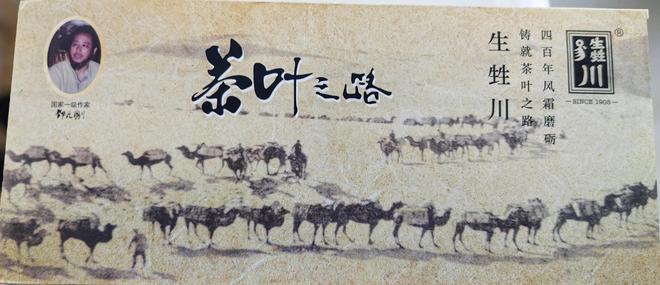 茶叶之路
国家一级作家
四百年风霜磨砺
铸就茶叶之路
生甡川
生甡川
®
SINCE 1905